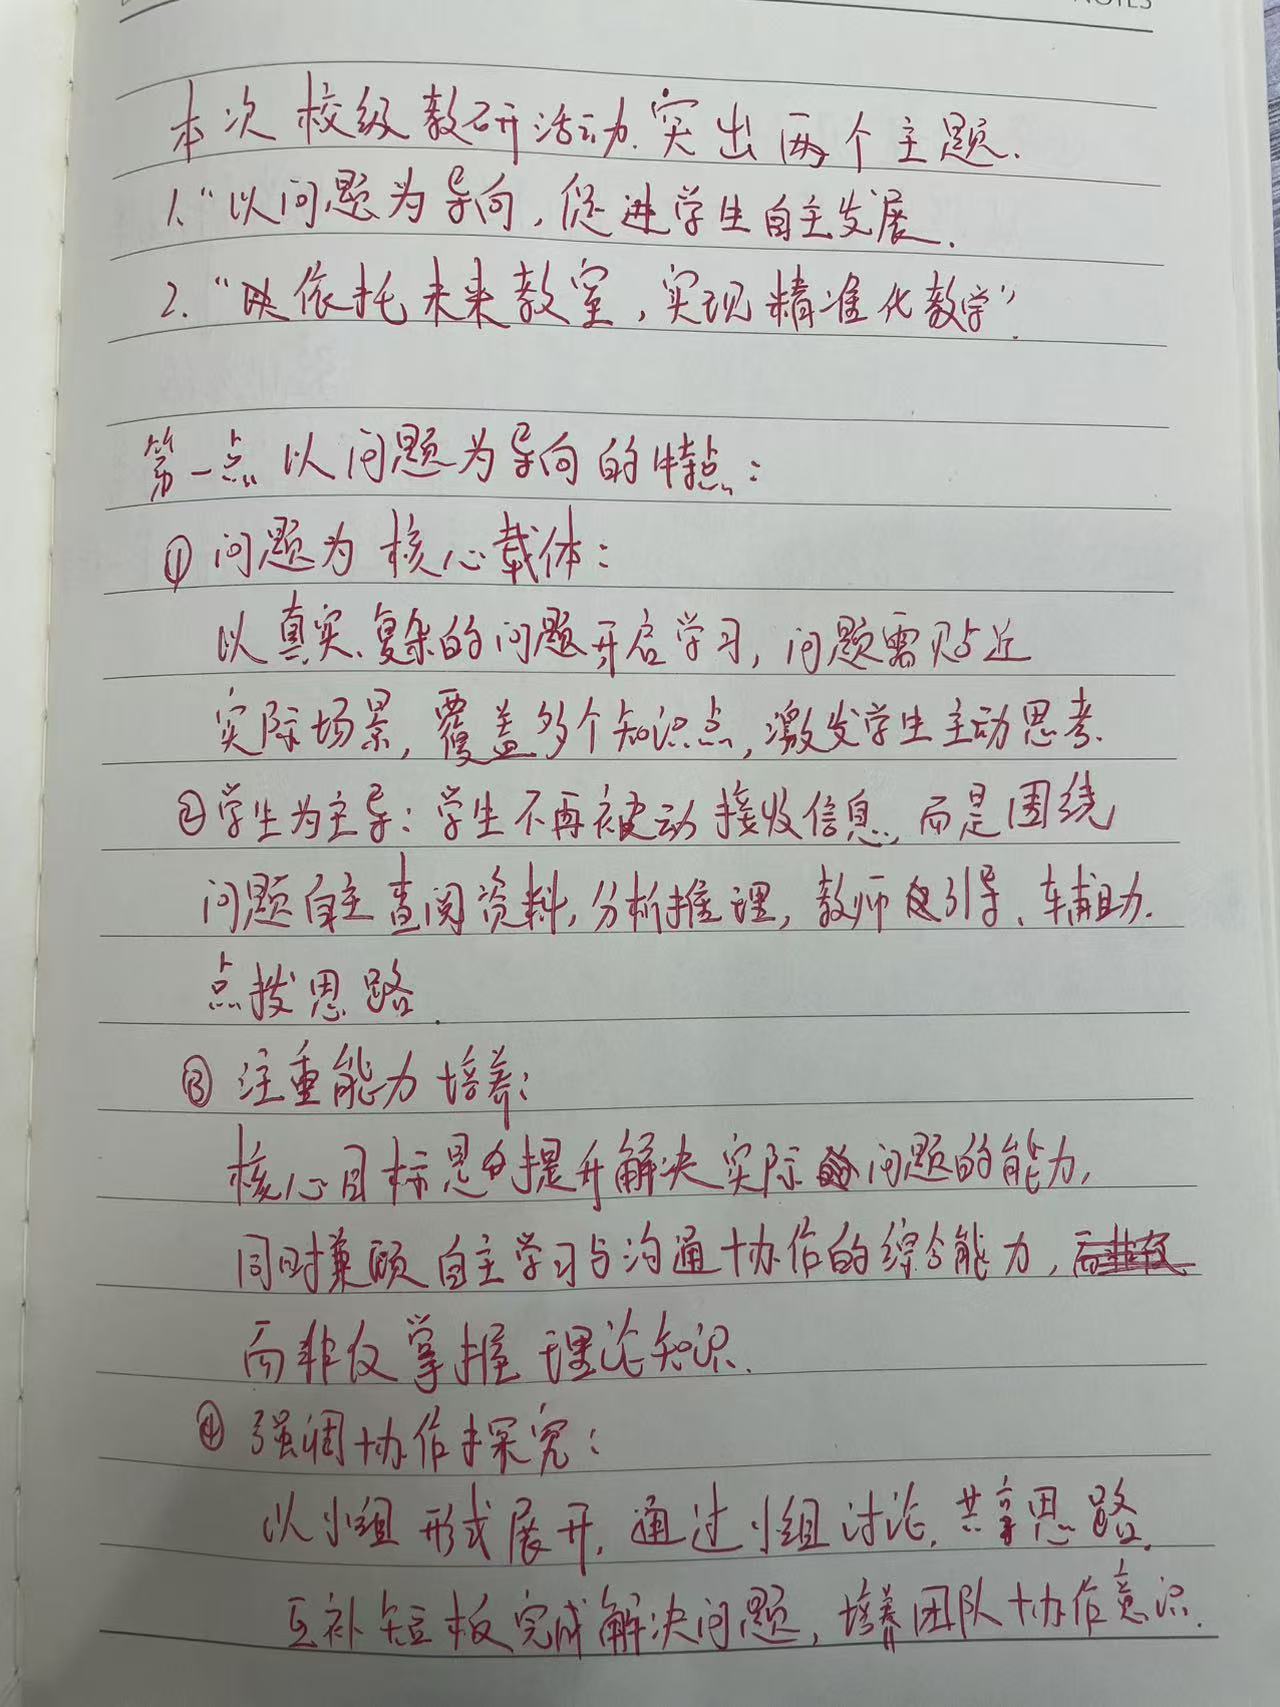 NOTES
本次校级教研活动.突出两个主题.
1."以问题为导向,促进学生自主发展.
2."依托未来教室,实现精准化教学".
第一点 以问题为导向的特点:
① 问题为核心载体:
以真实、复杂的问题开启学习,问题需贴近
实际场景,覆盖多个知识点,激发学生主动思考.
②学生为主导:学生不再被动接收信息,而是围绕
问题自主查阅资料,分析推理,教师引导、辅助.
点拨思路.
③ 注重能力培养:
核心目标是提升解决实际问题的能力,
同时兼顾自主学习与沟通协作的综合能力,
而非仅掌握理论知识.
④ 强调协作探究:
以小组形式展开,通过小组讨论,共享思路.
互补短板完成解决问题,培养团队协作意识.